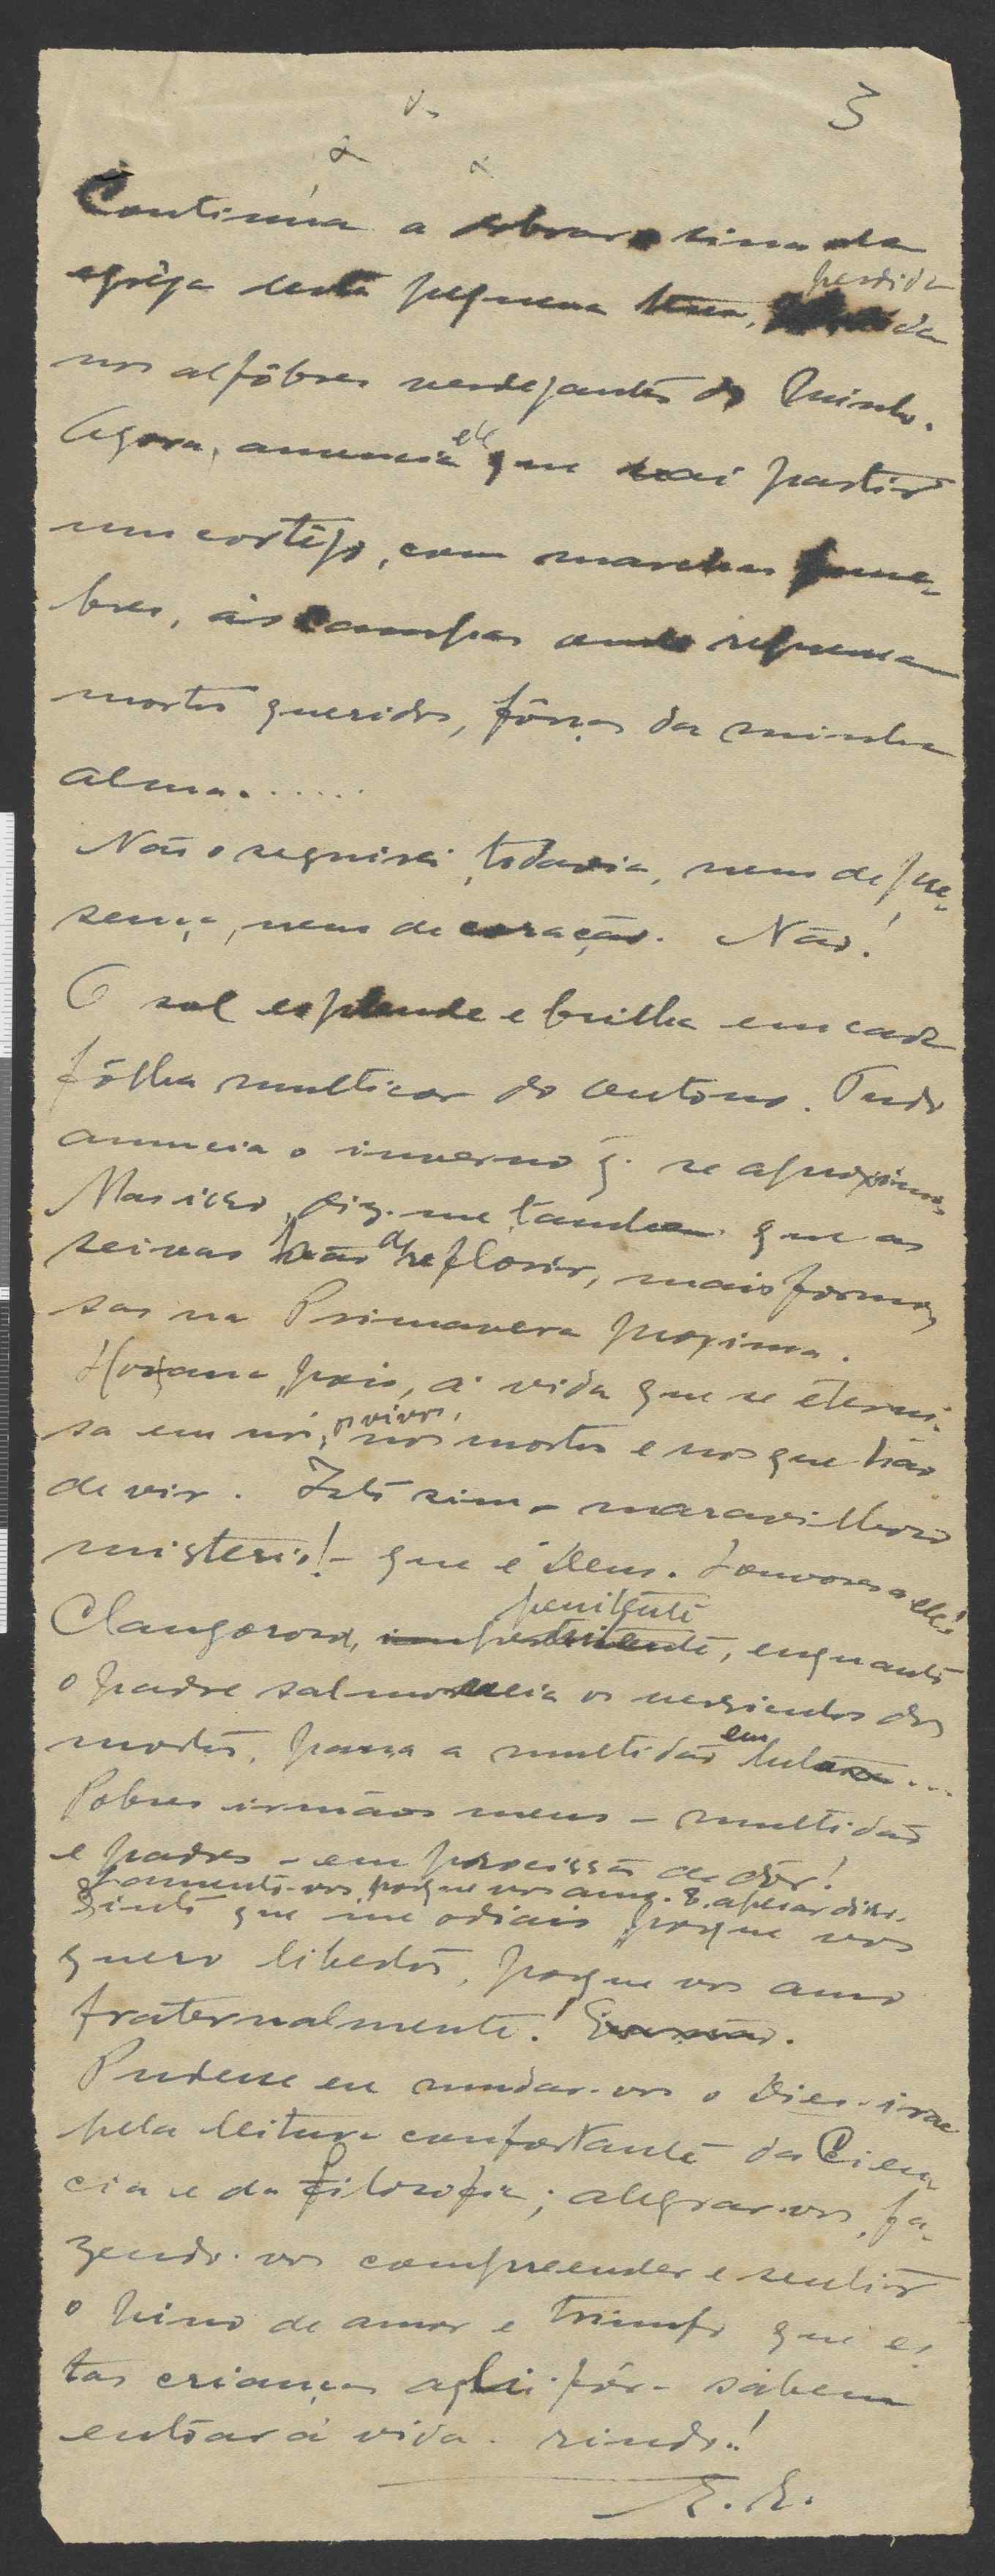 3
Continúa a dobrar o sino da
egrêja desta pequena terra, perdida
nos alfôbres verdejantes do Minho.
Agora, anuncia ele que vai partir
um cortêjo, com marchas fune-
bres, ás campas onde repousam
mortos queridos, fôrças da minha
alma......
Não o seguirei, todavia, nem de pre-
sença, nem de coração. Não!
O sol esplende e brilha em cada
fôlha multicor do outono. Tudo
anuncia o inverno q. se aproxima
Mas isso, diz-me tambem que as
seivas hão de reflorir, mais formo-
sas na Primavera proxima.
Hosana, pois, á vida que se eterni-
sa em nós, os vivos, nos mortos e nos que hão
de vir. Isto sim - maravilhoso
misterio! - que é Deus. Louvores a ele!
Clangorosa, penitente, enquanto
o padre salmodeia os versiculos dos
mortos, passa a multidão em luto...
Pobres irmãos meus - multidão
e padres - em procissão de dôr!
Lamento-vos, porque vos amo. E, apesar disso,
Sinto que me odiais porque vos
quero libertos, porque vos amo
fraternalmente!
Pudesse eu mudar-vos o Dies-irae
pela leitura confortante da Cien-
cia e da Filosofia; alegrar-vos, fa-
zendo-vos compreender e sentir
o hino de amor e triunfo que es-
tas crianças ali fóra sabem
entoar á vida. rindo!
E. E.